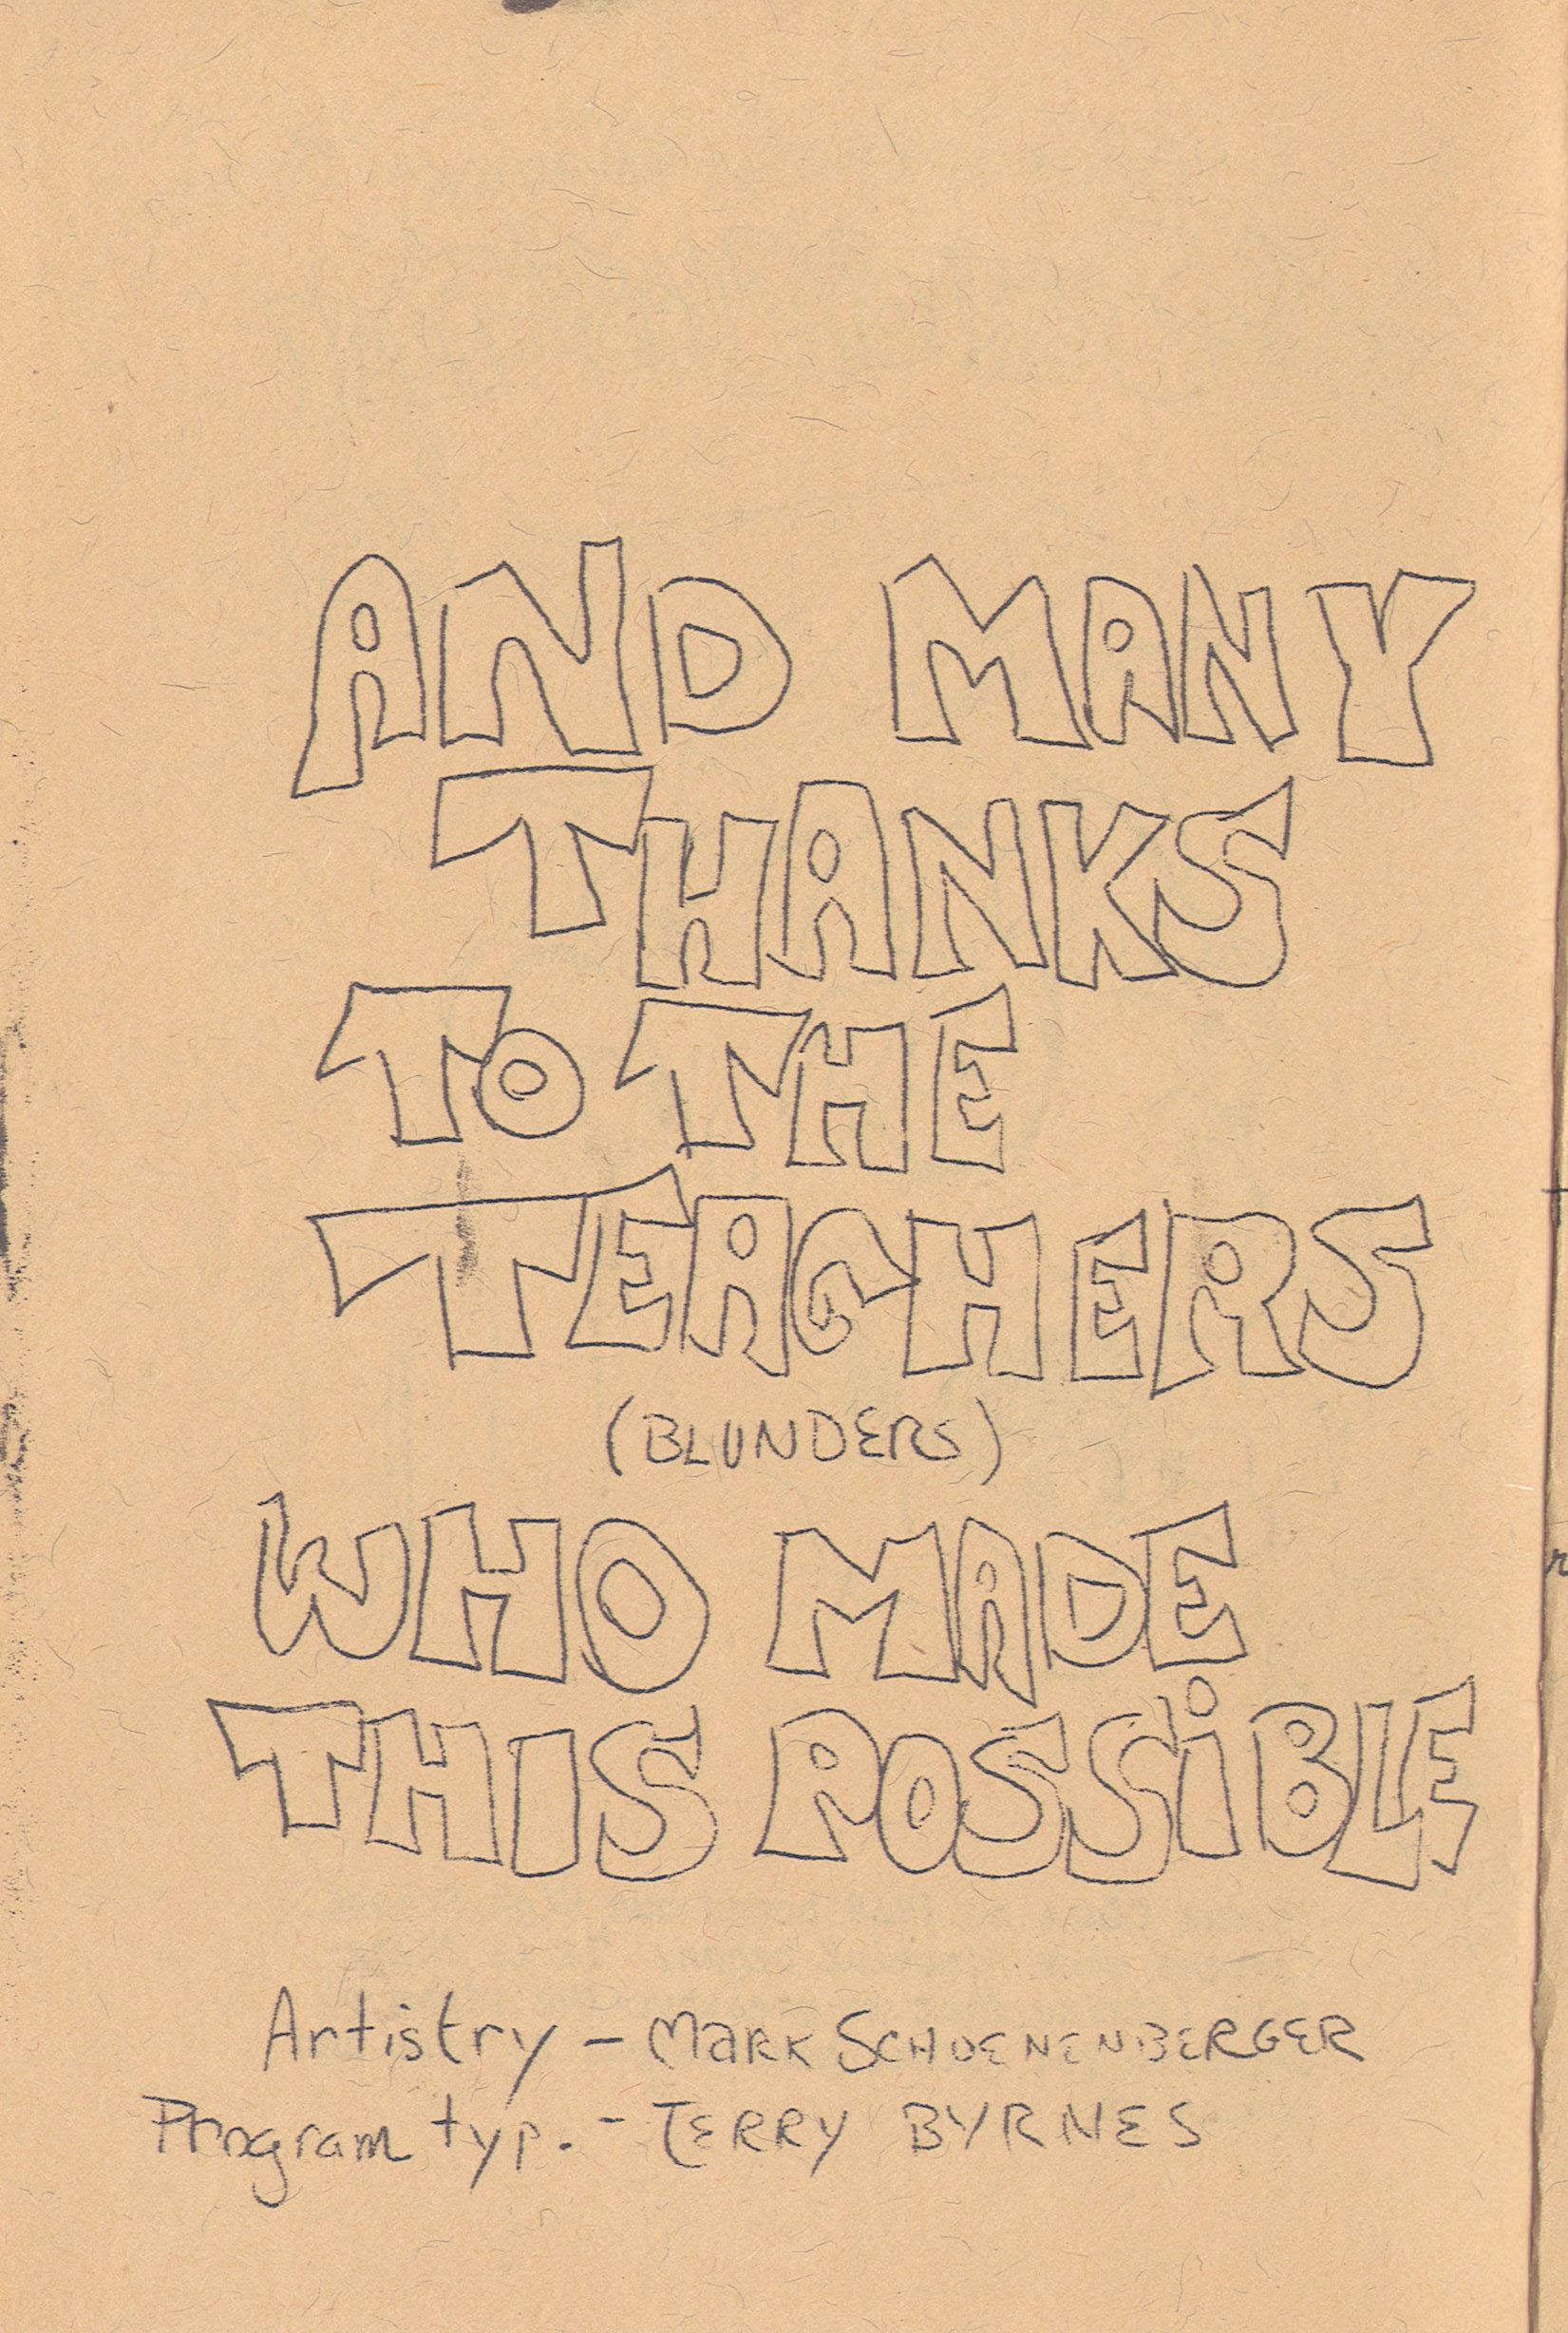 AND MANY
THANKS
TO THE
TEACHERS
(BLUNDERS)
WHO MADE
THIS POSSiBLE
Artistry – MARK SCHOENENBERGER
Program typ. - TERRY BYRNES